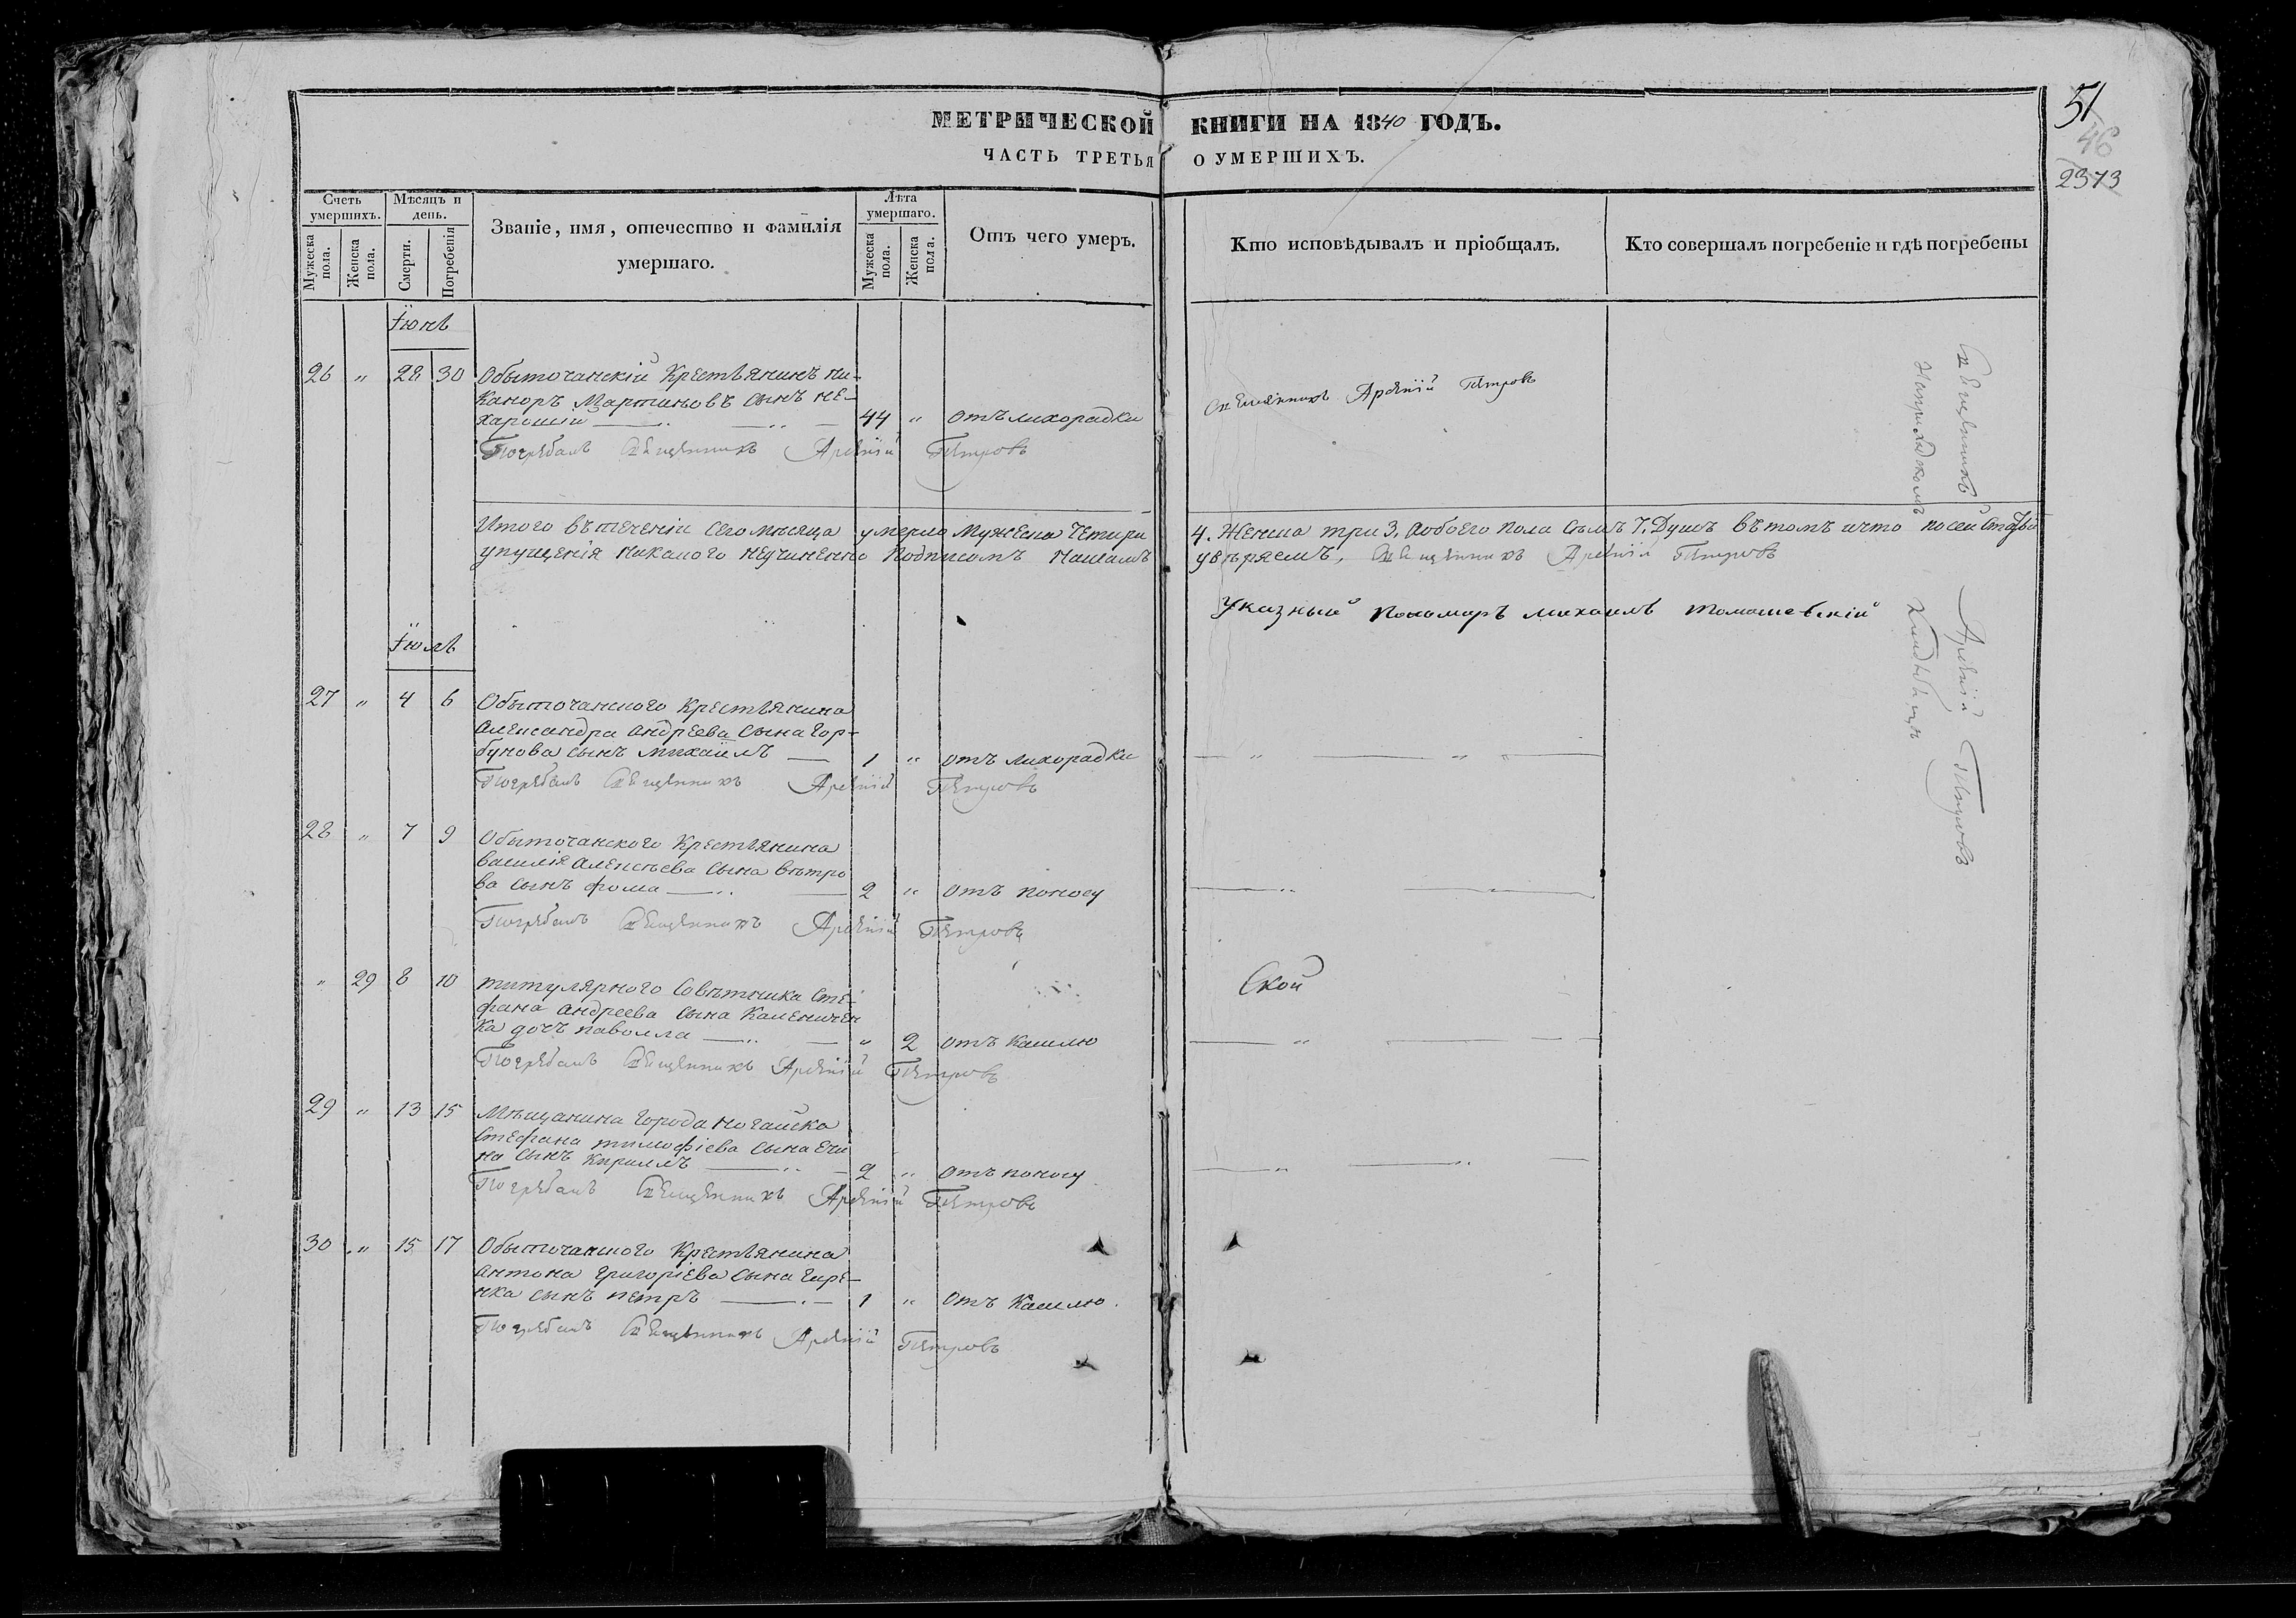 МЕТРИЧЕСКОЙ КНИГИ НА 1840 ГОДЪ.
ЧАСТЬ ТРЕТЬЯ О УМЕРШИХЪ.
51
46
2373
Счетъ умершихъ.
Мужеска пола.
Женска пола.
Мѣсяцъ и день.
Смерти.
Погребенія
Званіе, имя, отечество и фамилія
умершаго.
Лѣта умершаго.
Мужеска пола.
Женска пола.
Отъ чего умеръ.
Кто исповѣдывалъ и пріобщалъ.
Кто совершалъ погребеніе и гдѣ погребены
Іюнь
26 „ 28 30 Обыточанскій Крестьянинъ ни-
каноръ Мартиновъ сынъ не-
харошій 44 „ отъ лихорадки
Священникъ Арсеній Петровъ
Погребалъ Священникъ Арсеній Петровъ
Итого въ теченіи сего мѣсяца умерло Мужеска Четыри 4. Женска три 3. Aобоего пола семъ 7. Душъ вѣтомъ что по сей статьѣ
упущенія никакого неучиненно подписомъ Нашимъ увѣряемъ, Священникъ Арсеній Петровъ
Указный Пономаръ михаилъ томашевскій
Священникъ Арсеній Петровъ
на приходскомъ Кладбищѣ
Іюль
27 „ 4 6 Обыточанского Крестьянина
Александра Андреева сына Гор-
бунова сынъ михаилъ 1 „ отъ лихорадки
Погребалъ Священникъ Арсеній Петровъ
28 „ 7 9 Обыточанского Крестьянина
василія Алексѣева сына вѣтро
ва сынъ фома 2 „ отъ поносу
Погребалъ Священникъ Арсеній Петровъ
„ 29 8 10 титулярного Совѣтника Сте-
фана Андреева сына Каленичен
ка дочь паволла „ 2 отъ Кашлю
Ской
Погребалъ Священникъ Арсеній Петровъ
29 „ 13 15 Мѣщанина города Ногайска
Стефана тимофіева сына
на сынъ Кириллъ 2 „ отъ поносу
Погребалъ Священникъ Арсеній Петровъ
30 „ 15 17 Обыточанского Крестьянина
антона григоріева сына Гире-
нка сынъ петръ 1 „ отъ Кашлю.
Погребалъ Священникъ Арсеній Петровъ